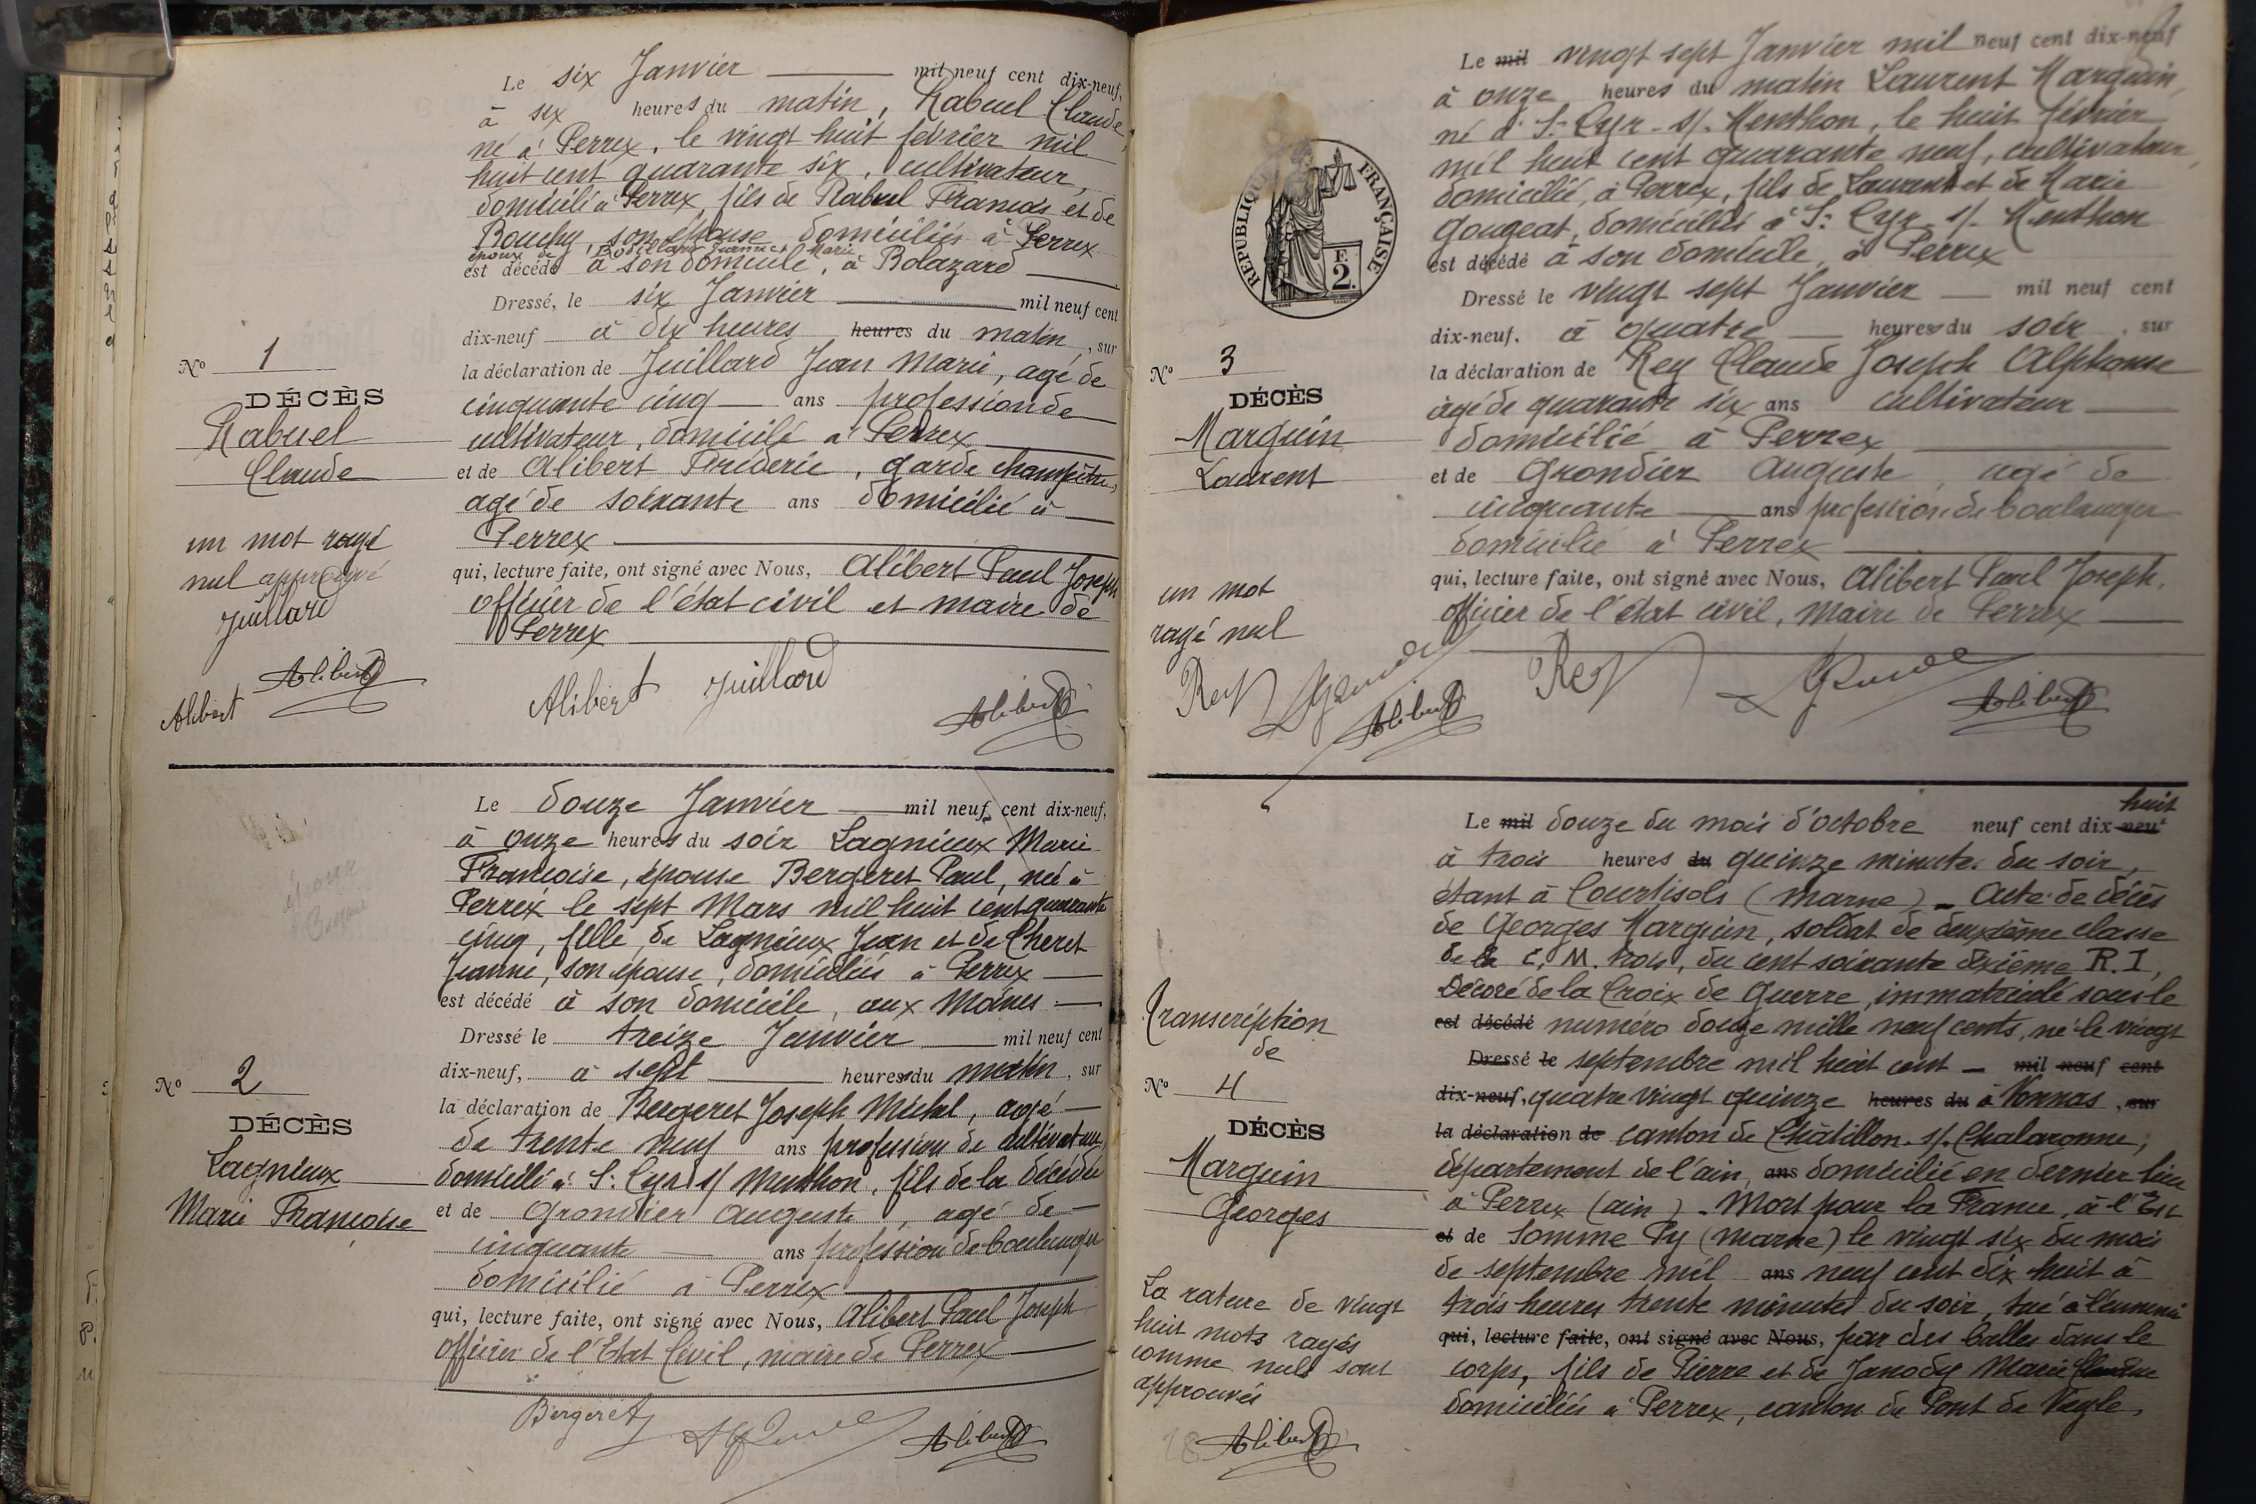 Le six Janvier mil neuf cent dix-neuf,
à six heures du matin, Rabuel Claude,
né à Perrex, le vingt huit février mil
huit cent quarante six, cultivateur,
domicilié à Perrex, fils de Rabuel François et de
Bouchy, son épouse domiciliés à Perrex
époux de Jeanne Marie
est décédé à son domicile, à Bolazard
Dressé, le six Janvier mil neuf cent
dix-neuf à dix heures heures du matin, sur
la déclaration de Juillard Jean Marie, agé de
cinquante cinq ans profession de
cultivateur, domicilé à Perrex
et de Alibert Fréderic, garde champêtre,
agé de soixante ans domicilié à
Perrex
qui, lecture faite, ont signé avec Nous, Alibert Paul Joseph
officier de l'état civil et maire de
Perrex
Alibert Juillard Alibert
No 1
DÉCÈS
Rabuel
Claude
un mot rayé
nul approuvé
Juillard
Alibert
Alibert
Le douze Janvier mil neuf cent dix-neuf,
à onze heures du soir Lagnieux Marie
Françoise, épouse Bergeret Paul, née à
Perrex le sept Mars mil huit cent quarante
cinq, fille de Lagnieux Jean et de Cheret
Jeanne, son épouse, domiciliés à Perrex
est décédé à son domicile, aux Moines
Dressé le treize Janvier mil neuf cent
dix-neuf, à sept heures du matin, sur
la déclaration de Bergeret Joseph Michel, agé
de trente neuf ans profession de cultivateur
domicilié à St Cyr s/ Menthon, fils de la décédée
et de Grondier Auguste, agé de
cinquante ans profession de boulanger
domicilié à Perrex
qui, lecture faite, ont signé avec Nous, Alibert Paul Joseph
officier de l'Etat Civil, maire de Perrex
Bergeret Alibert
No 2
DÉCÈS
Lagnieux
Marie Françoise
Le mil vingt sept Janvier mil neuf cent dix-neuf
à onze heures du matin Laurent Marguin,
né à St Cyr-s/-Menthon, le huit février
mil huit cent quarante neuf, cultivateur,
domicilié, à Perrex, fils de Laurent et de Marie
Gougeat, domiciliés à St Cyr s/-Menthon
est décédé à son domicile, à Perrex
Dressé le vingt sept Janvier mil neuf cent
dix-neuf. à quatre heures du soir, sur
la déclaration de Rey Claude Joseph Alphonse
agé de quarante six ans cultivateur
domicilié à Perrex
et de Grondier Auguste, agé de
cinquante ans profession de boulanger
domicilié à Perrex
qui, lecture faite, ont signé avec Nous, Alibert Paul Joseph,
officier de l'état civil, maire de Perrex
Rey Alibert
RÉPUBLIQUE FRANÇAISE
E
2.
No 3
DÉCÈS
Marguin
Laurent
un mot
rayé nul
Rey Alibert
Le mil douze du mois d'octobre neuf cent dix-neuf huit
à trois heures du quinze minutes du soir,
étant à Courtisols (Marne) - Acte de décès
de Georges Marguin, soldat de deuxième classe
de la C. M. trois, du cent soixante dixième R. I,
Décoré de la Croix de Guerre, immatriculé sous le
est décédé numéro douze mille neuf cents, né le vingt
Dressé le septembre mil huit cent - mil neuf cent
dix-neuf, quatre vingt quinze heures du à Vonnas, sur
la déclaration de canton de Châtillon-s/-Chalaronne,
département de l'ain, ans domicilié en dernier lieu
à Perrex (ain). Mort pour la France, à l'Est
et de Somme Py (Marne) le vingt six du mois
de septembre mil ans neuf cent dix huit à
trois heures trente minutes du soir, tué à l'ennemi
qui, lecture faite, ont signé avec Nous, par des balles dans le
corps, fils de Pierre et de Janody Marie Claudine
domiciliés à Perrex, canton de Pont de Veyle,
Transcription
de
No 4
DÉCÈS
Marguin
Georges
La rature de vingt
huit mots rayés
comme nuls sont
approuvés
28 Alibert